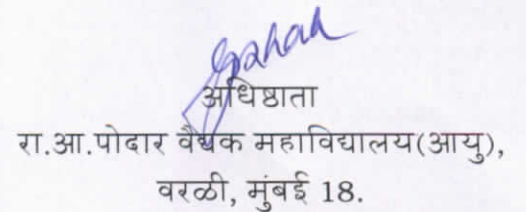 अधिष्ठाता
रा.आ.पोदार वैद्यक महाविद्यालय(आयु),
वरळी, मुंबई 18.